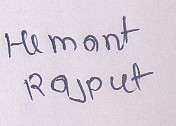 Hemant
Rajput